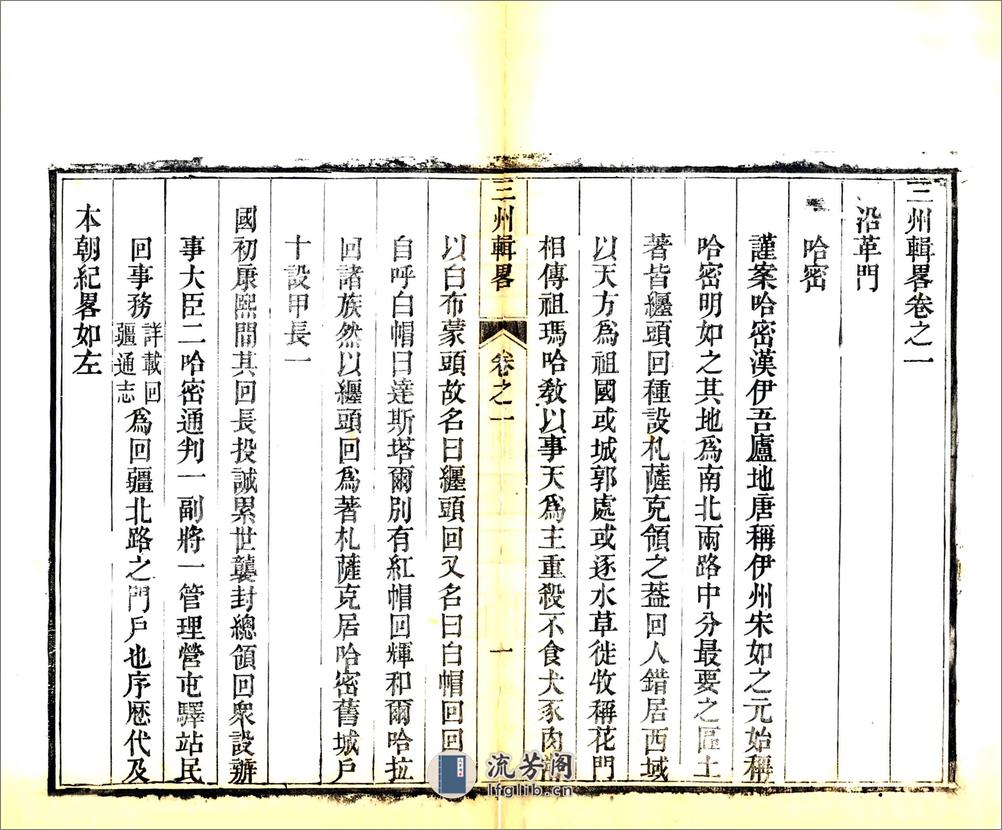 三州輯畧卷之一
沿革門
哈密
謹案哈密漢伊吾廬地唐稱伊州宋如之元始稱
哈密明如之其地爲南北兩路中分最要之區土
著皆纏頭回種設札薩克領之葢回人錯居西域
以天方爲祖國或城郭處或逐水草徙牧稱花門
相傳祖瑪哈教以事天爲主重殺不食犬豕肉
三州輯畧 卷之一 一
以白布蒙頭故名曰纏頭回又名曰白帽回回
自呼白帽曰達斯塔爾別有紅帽回輝和爾哈拉
回諸族然以纏頭回爲著札薩克居哈密舊城戶
十設甲長一
國初康熙間其回長投誠累世襲封總領回衆設辦
事大臣二哈密通判一副將一管理營屯驛站民
回事務詳載回疆通志爲回疆北路之門戶也序歷代及
本朝紀畧如左
流芳阁
lfglib.cn